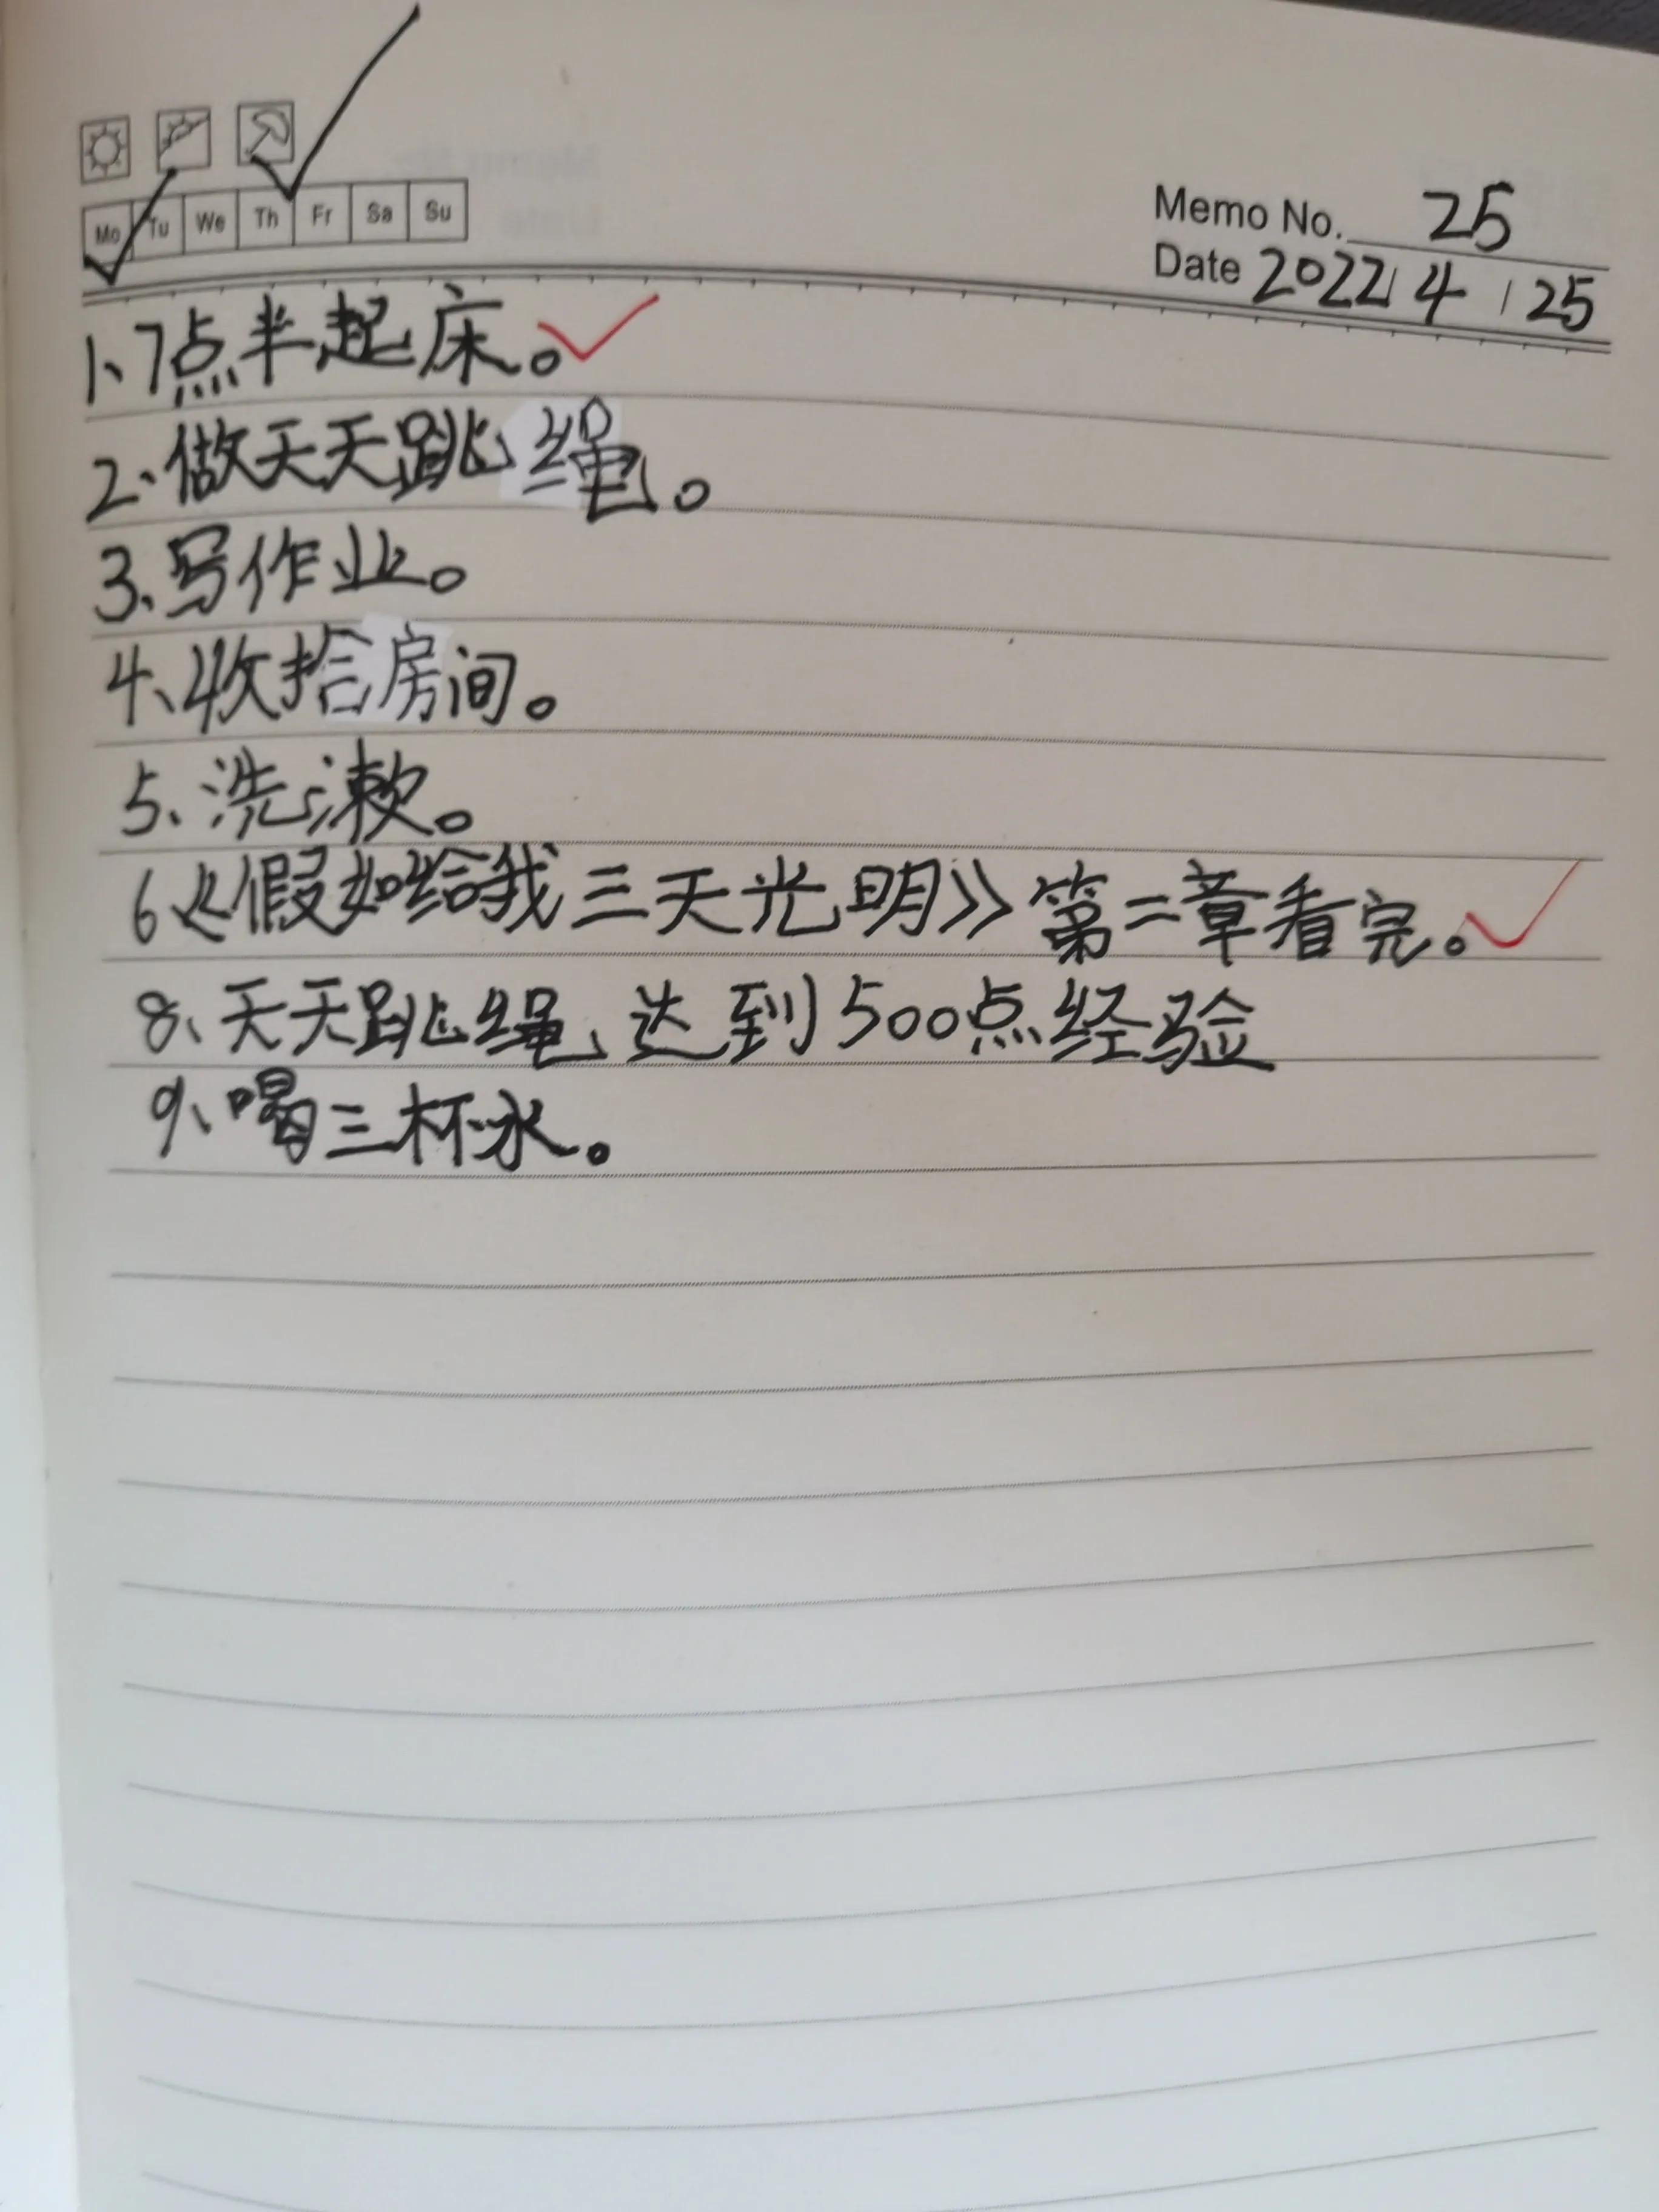 Mo Tu We Th Fr Sa Su
Memo No. 25
Date 2022/4/25
1、7点半起床。
2、做天天跳绳。
3、写作业。
4、收拾房间。
5、洗漱。
6《假如给我三天光明》第二章看完。
8、天天跳绳、达到500点经验
9、喝三杯水。